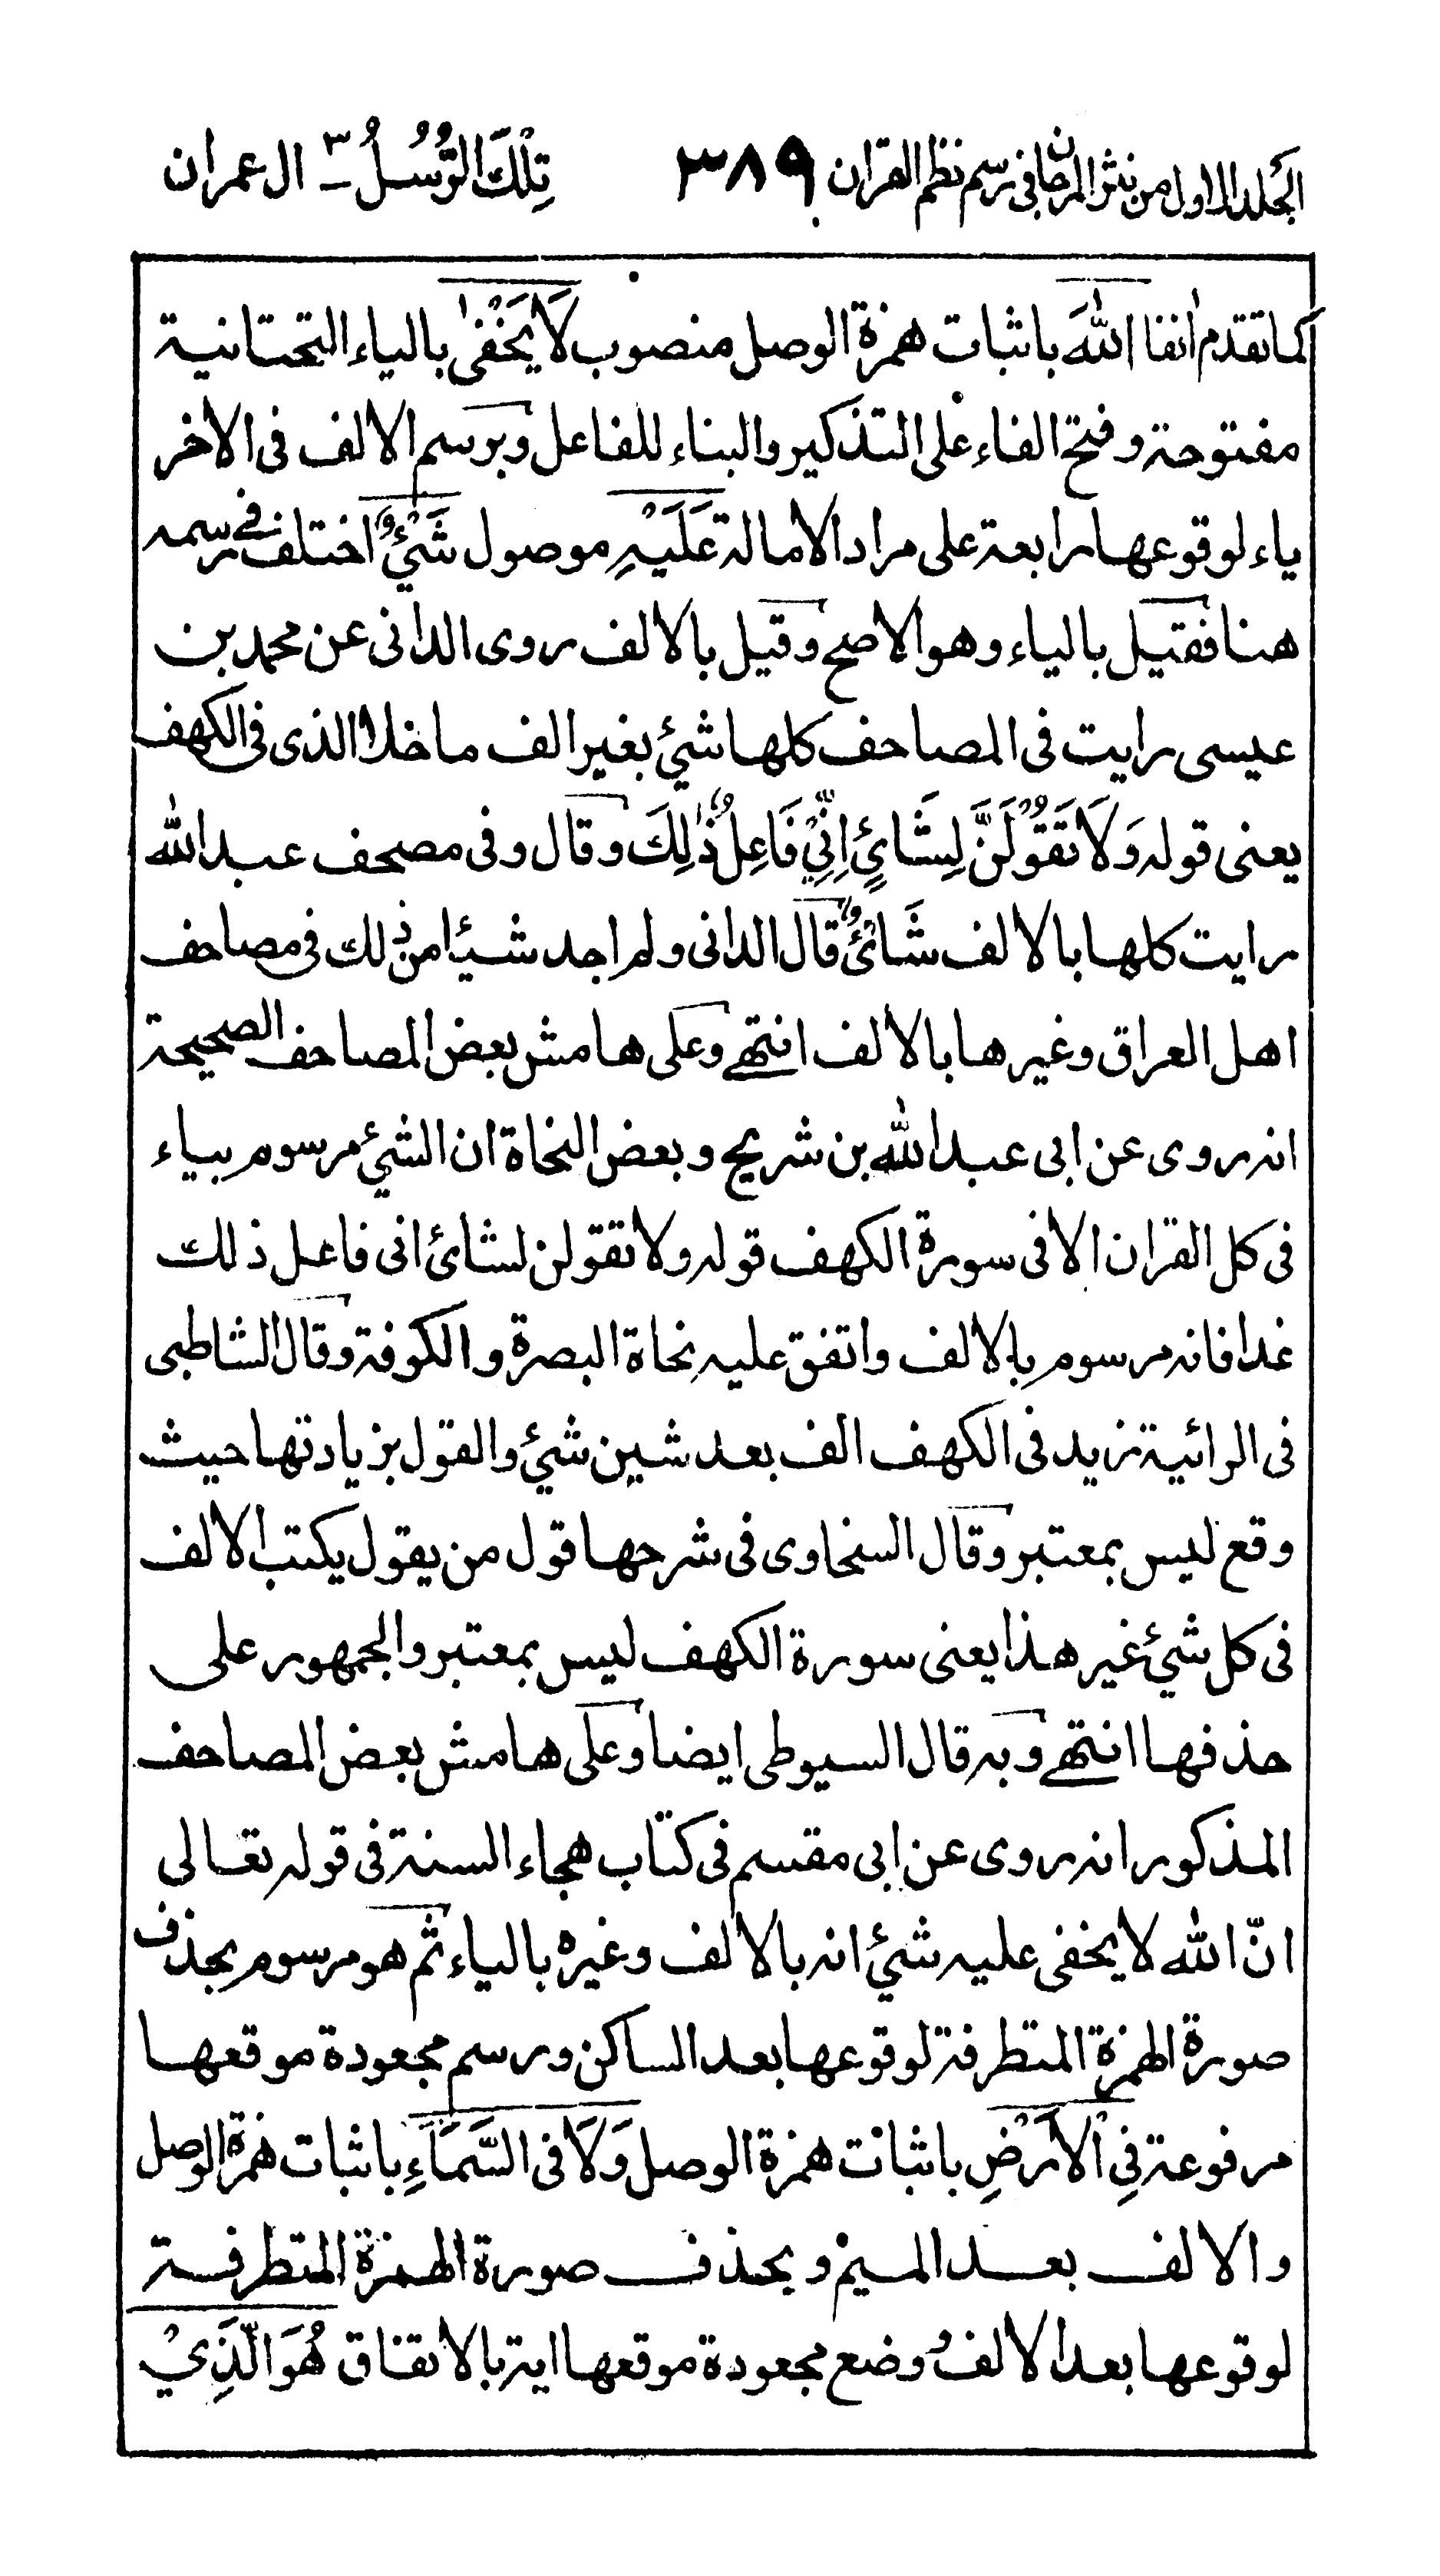 الجلد الاول من نثر المرجان في رسم نظم القران ٣٨٩ تِلْكَ الرُّسُلُ ٣ - ال عمران
كما تقدم انفا اللهَ باثبات همزة الوصل منصوب لَا يَخْفٰى بالياء التحتانية
مفتوحة وفتح الفاء على التذكير والبناء للفاعل وبرسم الالف فى الاخر
ياء لوقوعها رابعة على مراد الامالة عَلَيْهِ موصول شَيْءٌ اختلف في رسمه
هنا فقيل بالياء وهو الاصح وقيل بالالف روى الدانى عن محمد بن
عيسى رايت فى المصاحف كلها شئ بغير الف ما خلا الذى فى الكهف
يعنى قوله وَلَا تَقُوْلَنَّ لِشَائٍ اِنِّيْ فَاعِلٌ ذٰلِكَ وقال وفى مصحف عبد الله
رايت كلها بالالف شَائٌ قال الدانى ولم اجد شيئا من ذلك فى مصاحف
اهل العراق وغيرها بالالف انتهے وعلى هامش بعض المصاحف الصحيحة
انه روى عن ابى عبد الله بن شريح وبعض النحاة ان الشئ مرسوم بياء
فى كل القران الا فى سورة الكهف قوله ولا تقولن لشائ انى فاعل ذلك
غدا فانه مرسوم بالالف واتفق عليه نحاة البصرة والكوفة وقال الشاطبى
فى الرائية زيد فى الكهف الف بعد شين شئ والقول بزيادتها حيث
وقع ليس بمعتبر وقال السخاوى فى شرحها قول من يقول يكتب الالف
فى كل شئ غير هذا يعنى سورة الكهف ليس بمعتبر والجمهور على
حذفها انتهے وبه قال السيوطى ايضا وعلى هامش بعض المصاحف
المذكور انه روى عن ابى مقسم فى كتاب هجاء السنة فى قوله تعالى
انّ الله لا يخفى عليه شئ انه بالالف وغيره بالياء ثم هو مرسوم بحذف
صورة الهمزة المتطرفة لوقوعها بعد الساكن ورسم مجعودة موقعها
مرفوعة فِي الْاَرْضِ باثبات همزة الوصل وَلَا فى السَّمَاءِ باثبات همزة الوصل
والالف بعد الميم وبحذف صورة الهمزة المتطرفة
لوقوعها بعد الالف وضع مجعودة موقعها اية بالاتفاق هُوَ الَّذِيْ